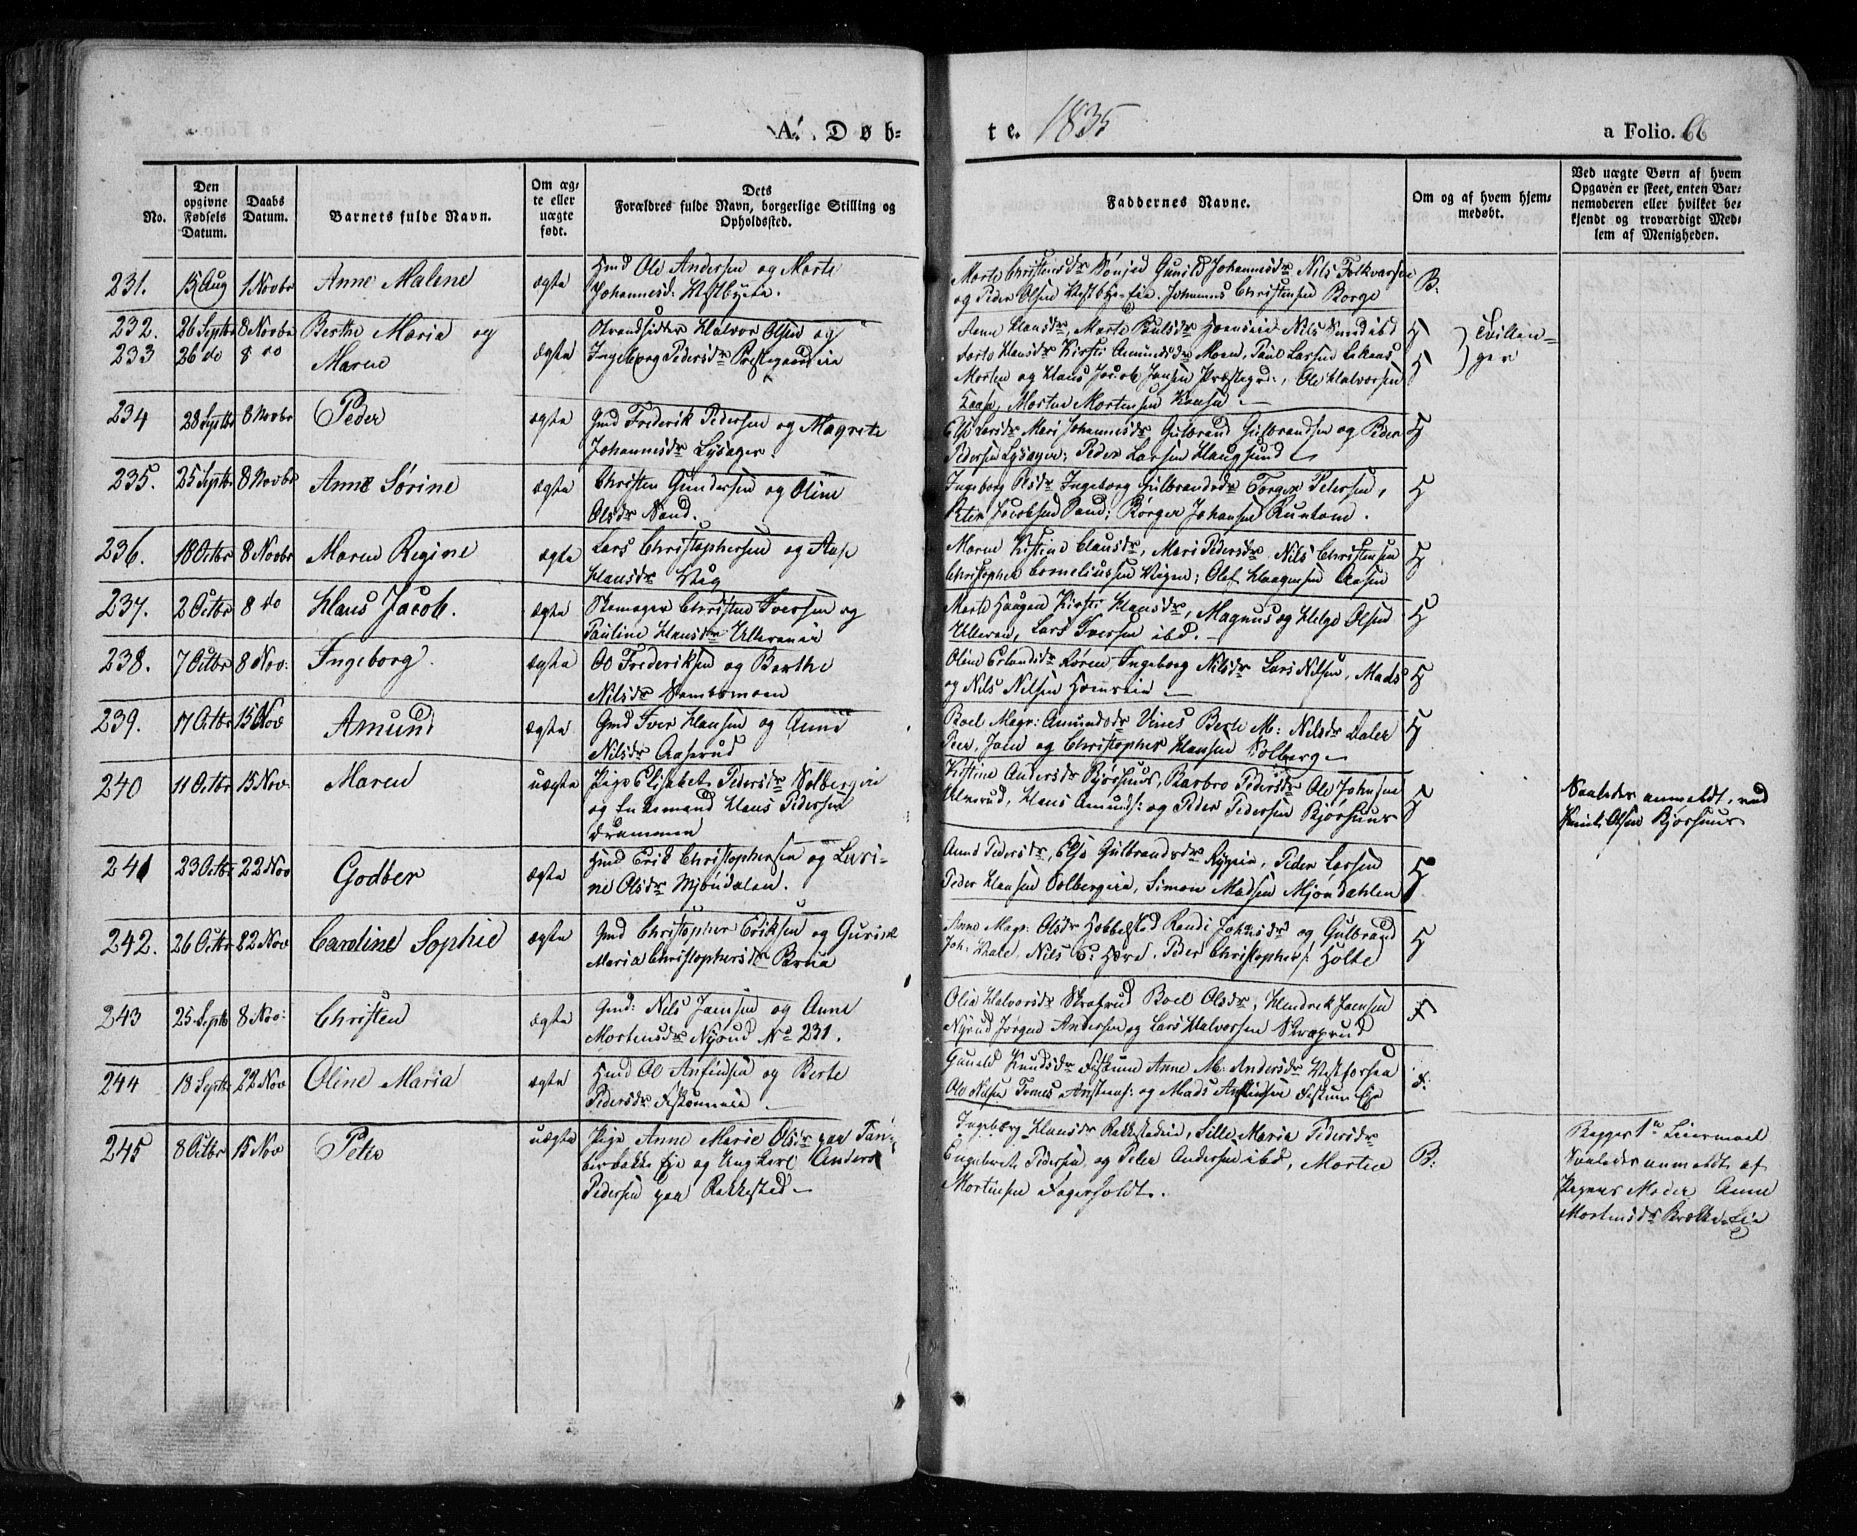 A. Døb-
te. 1835
a Folio. 66
No.
Den opgivne Fødsels Datum.
Daabs Datum.
Barnets fulde Navn.
Om ægte eller uægte født.
Dets Forældres fulde Navn, borgerlige Stilling og Opholdssted.
Faddernes Navne.
Om og af hvem hjemmedøbt.
Ved uægte Børn af hvem Opgaven er skeet, enten Barnemoderen eller hvilket bekjendt og troværdigt Medlem af Menigheden.
231. 13 Aug 1 Novbr Anne Malene ægte Hmd Ole Andersen og Marte
Johannesd.
Marte Christensdr Gunild Johannesdr Nils Folkvarsen B.
og Peder Olsen Johannes Christensen Borge
232. 26 Septbr 8 Novbr Berthe Maria og
233 26 do 8 do Maren ægte
Strandsidder Halvor Olsen og
Ingeborg Pedersdr Prestegaardseie
Anne Hansdr, Marte Paulsdr Nils ibd H Tvillin-
Hansdr Kirsti Amundsdr Moen, Paul Larsen H ger
Morten og Hans Jacob Jansen Præstegrd:, Ole Halvorsen
Morten Mortensen
234 28 Septbr 8 Novbr Peder ægte Gmd Frederik Pedersen og Magrete
Johannesdr Lysager.
Larsdr Mari Johannesdr Gulbrand Gulbrandsen og Peder H
Pedersen Lysager, Peder Larsen Haugsund
235. 25 Septbr 8 Novbr Anne Sørine ægte Christen Gundersen og Oline
Olsdr Sand.
Ingeborg Olsdr Ingeborg Gulbrandsdr Torger Petersen, H
Peter Jacobsen Sand; Børger Johansen
236. 18 Octbr 8 Novbr Maren Regine ægte Lars Christophersen og
Hansdr
Maren Kistine Clausdr, Mari Pedersdr, Nils Christensen H
Christopher Corneliussen; Olef Haagensen Aasen
237. 2 Octbr 8 do Hans Jacob. ægte Skomager Christen Iversen og
Pauline Hansdr
Marte Haugen Kirsti Hansdr, Magnus og Helge Olsen H
Ulleren, Lars Iversen ibd.
238. 7 Octbr 8 Nov: Ingeborg. ægte Ole Frederiksen og Berthe
Nilsdr
Oline Erlandsdr Ingeborg Nilsdr Lars Nilsen, Mads H
og Nils Nilsen
239. 17 Octbr 15 Nov Amund ægte Gmd Iver Hansen og Anne
Nilsdr Aaserud
Boel Magr: Amundsdr Berte M: Nilsdr Daler H
Peer, Jens og Christopher Hansen Solberg
240 11 Octbr 15 Nov Maren uægte Pige Elisabet Pedersdr Solbergeie
og Enkemand Hans Pedersen
Drammen
Kistine Andersdr Bjørhuus, Barbro Pedersdr Ole Johnsen
Ulverud, Hans Amunds: og Peder Pedersen Bjørhuus H
Saaledes anmeldt, ved
Olsen Bjørhuus
241 23 Octbr 22 Nov Godber ægte Hmd Erik Christophersen og Lavi-
ne Olsdr Mjøndalen.
Anne Pedersdr, Else Gulbrandsdr, Peder Larsen H
Peder Hansen Solbergeie, Simon Madsen Mjøndahlen
242. 26 Octbr 22 Nov Caroline Sophie ægte Gmd Christopher Eriksen og Gurine
Maria Christophersdr Brua
Anne Magr: Olsdr Hobbelstad Randi Johnsdr og Gulbrand H
Joh: Nils. Peder Christophers: Holte
243 25 Septb 8 Nov: Christen ægte Gmd: Nils Jansen og Anne
Mortensdr Nyrud No 231.
Olia Halvorsdr Boel Olsdr, Hendrik Jansen F
Nyrud Jørgen Andersen og Lars Halvorsen
244 18 Septbr 22 Nov Oline Maria ægte Hmd Ole Anfinsen og Berte
Pedersdr Fiskumeie
Gunild Knudsdr Fiskum Anne M. Andersdr Vestfossen F.
Ole Nilsen og Mads Anfinsen Fiskum Eje
245 8 Octbr 15 Nov Peter uægte Pige Anne Marie Olsdr paa Tan-
berbakke Eje og Ung Karl Anders
Pedersen paa Rakkestad
Ingeborg Hansdr Rakkestadeie, Sille Maria Pedersdr B:
Engebret Pedersen og Peter Andersen ibd, Morten
Mortensen Fagerholdt.
Begges 1te Leiermaal
Saaledes anmeldt af
Pigens Moder Anne
Mortensdr